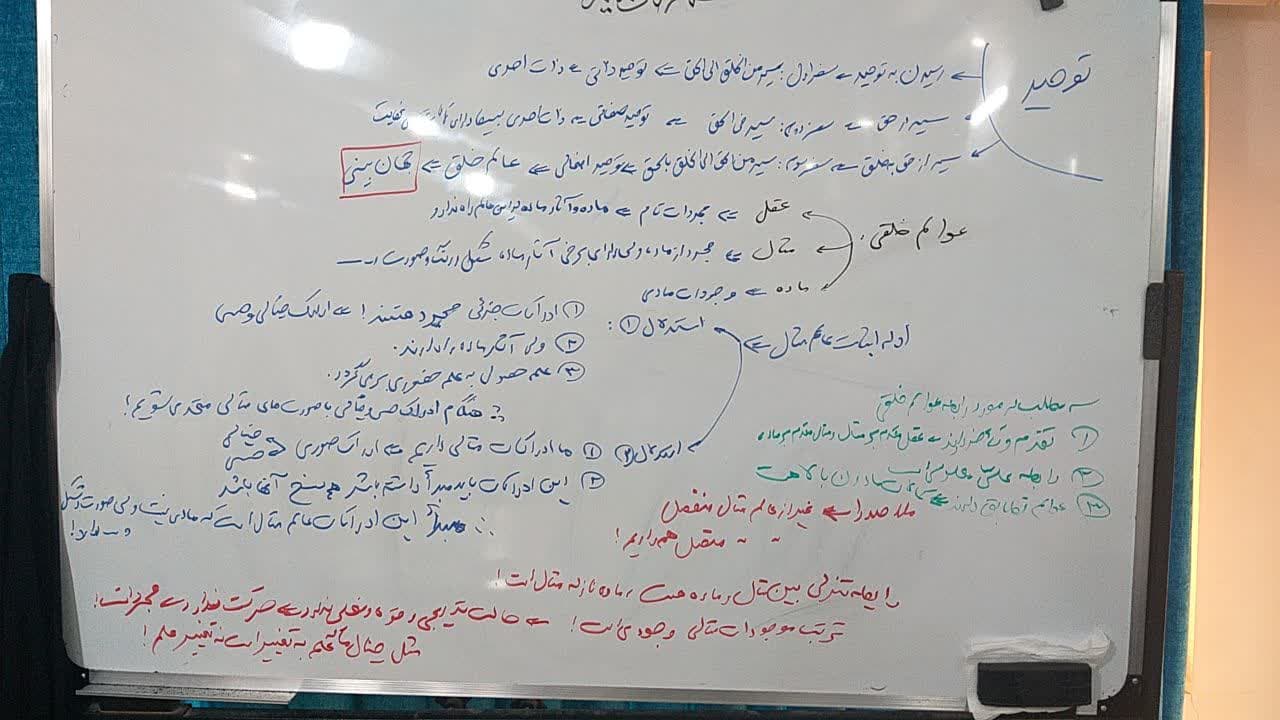 توحید
رسیدن به توحید ← سفر اول: سیر من الخلق الی الحق ← توحید ذاتی ← ذات احدی
سیر در حق ← سفر دوم: سیر فی الحق ← توحید صفاتی ← ذات احدی بسیط دارای کمالات بی نهایت
سیر از حق به خلق ← سفر سوم: سیر من الحق الی الخلق بالحق ← توحید افعالی ← عالم خلق ← جهان بینی
عوالم خلقی:
عقل ← مجردات تام ← ماده و آثار ماده در این عالم راه ندارد
مثال ← مجرد از ماده، ولی دارای برخی آثار ماده، شکل و رنگ و صورت و...
ماده ← وجودات مادی
ادله اثبات عالم مثال ←
استدلال ①:
① ادراکات جزئی مجرد هستند! ← ادراک خیالی و حسی
② ولی آثار ماده را دارند.
③ علم حصولی به علم حضوری برمی گردد.
هنگام ادراک حسی و خیالی با صورت های مثالی متحد می شویم!
استدلال ②
① ما ادراکات مثالی داریم ← ادراک صوری ← خیالی
حسی
② این ادراکات باید مبدأ داشته باشد هم سنخ آنها باشد
∴ مبدأ این ادراکات عالم مثال است که مادی نیست ولی صورت و شکل
و ... دارد!
سه مطلب در مورد رابطه عوالم خلقی
① تقدم و تأخر دارند ← عقل مقدم بر مثال و مثال مقدم بر ماده
② رابطه علی و معلولی
③ عوالم تطابق دارند ← کمالات مادون با لاحق
ملاصدرا ← غیر از عالم مثال منفصل
〃 〃 متصل هم داریم!
رابطه تنزلی بین مثال و ماده هست، ماده نازله مثال است!
ترتب موجودات مثالی وجودی است! ← حالت تدریجی و قوه و فعلی ندارد ← حرکت ندارد ← مجردات!
مثل خیال ما علم به تغییر است نه تغییر علم!